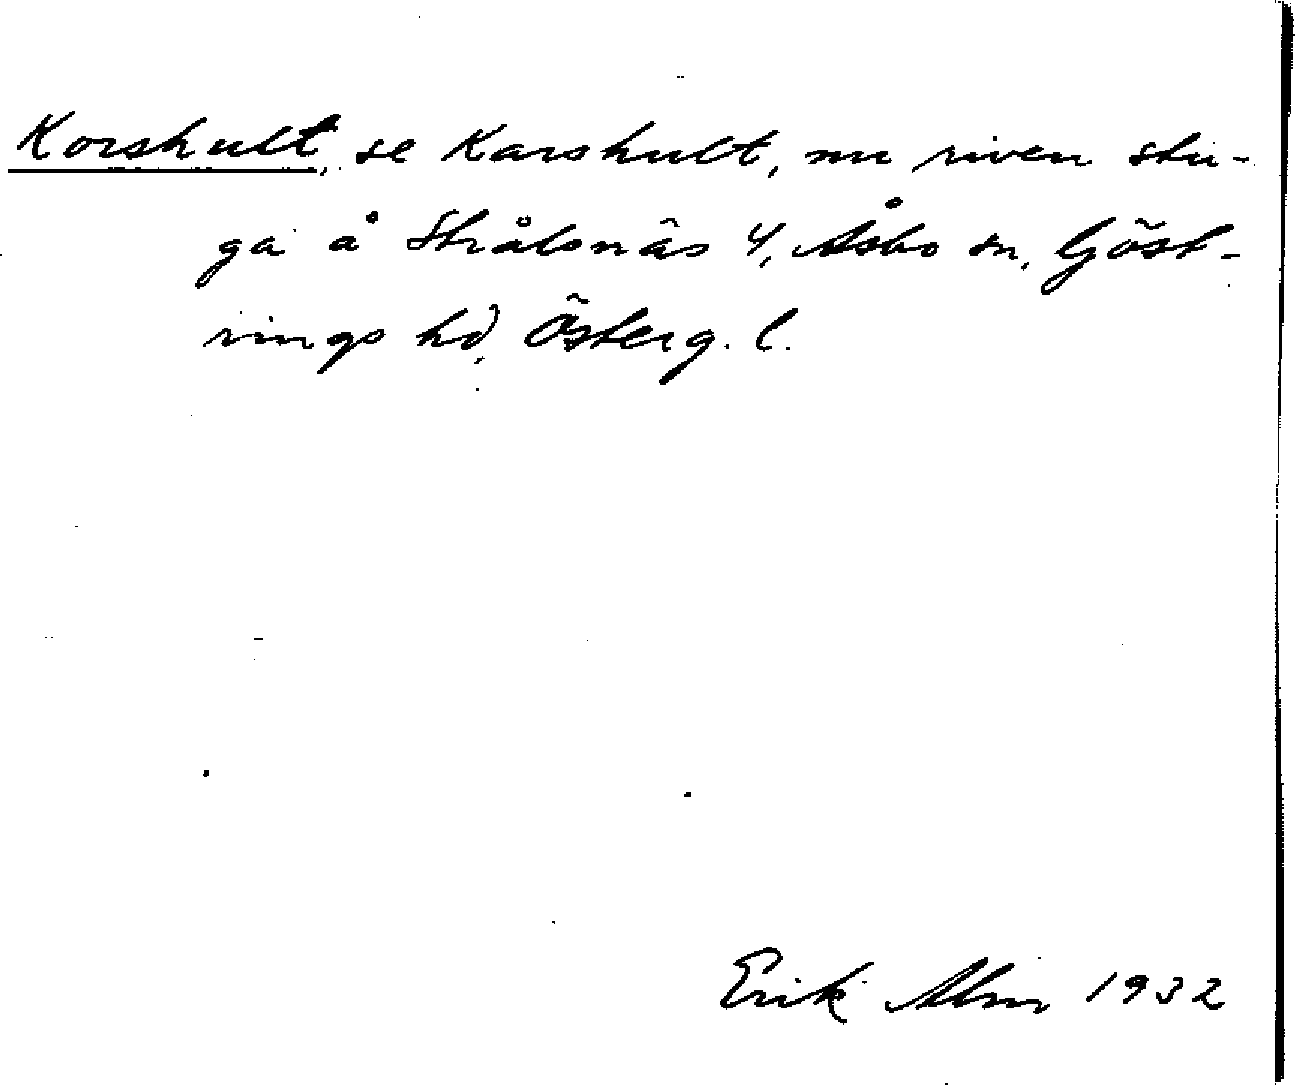 Korshult, se Karshult, nu riven stu-
ga å Strålsnäs 4, Åsbo sn, Göst-
rings hd, Österg. l.
Erik Alm 1932